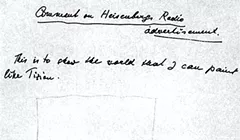 Comment on Heisenbergs Radio
advertisement.
This is to show the world that I can paint
like Tizian.